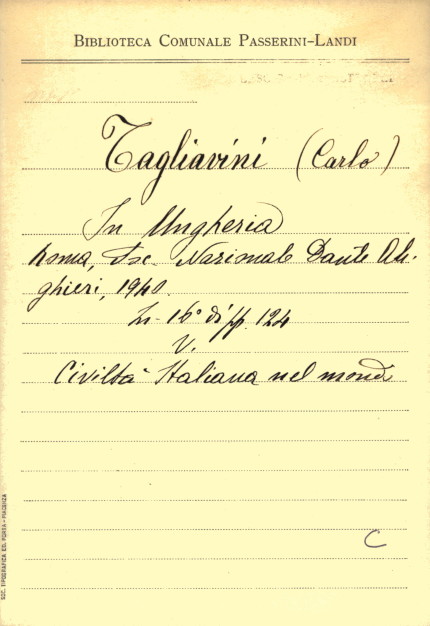 BIBLIOTECA COMUNALE PASSERINI-LANDI
Tagliavini (Carlo)
In Ungheria
Roma, Soc. Nazionale Dante Ali-
ghieri, 1940.
In-16° di pp. 124
V.
Civiltà Italiana nel mondo
C
SOC. TIPOGRAFICA ED. PORTA-PIACENZA